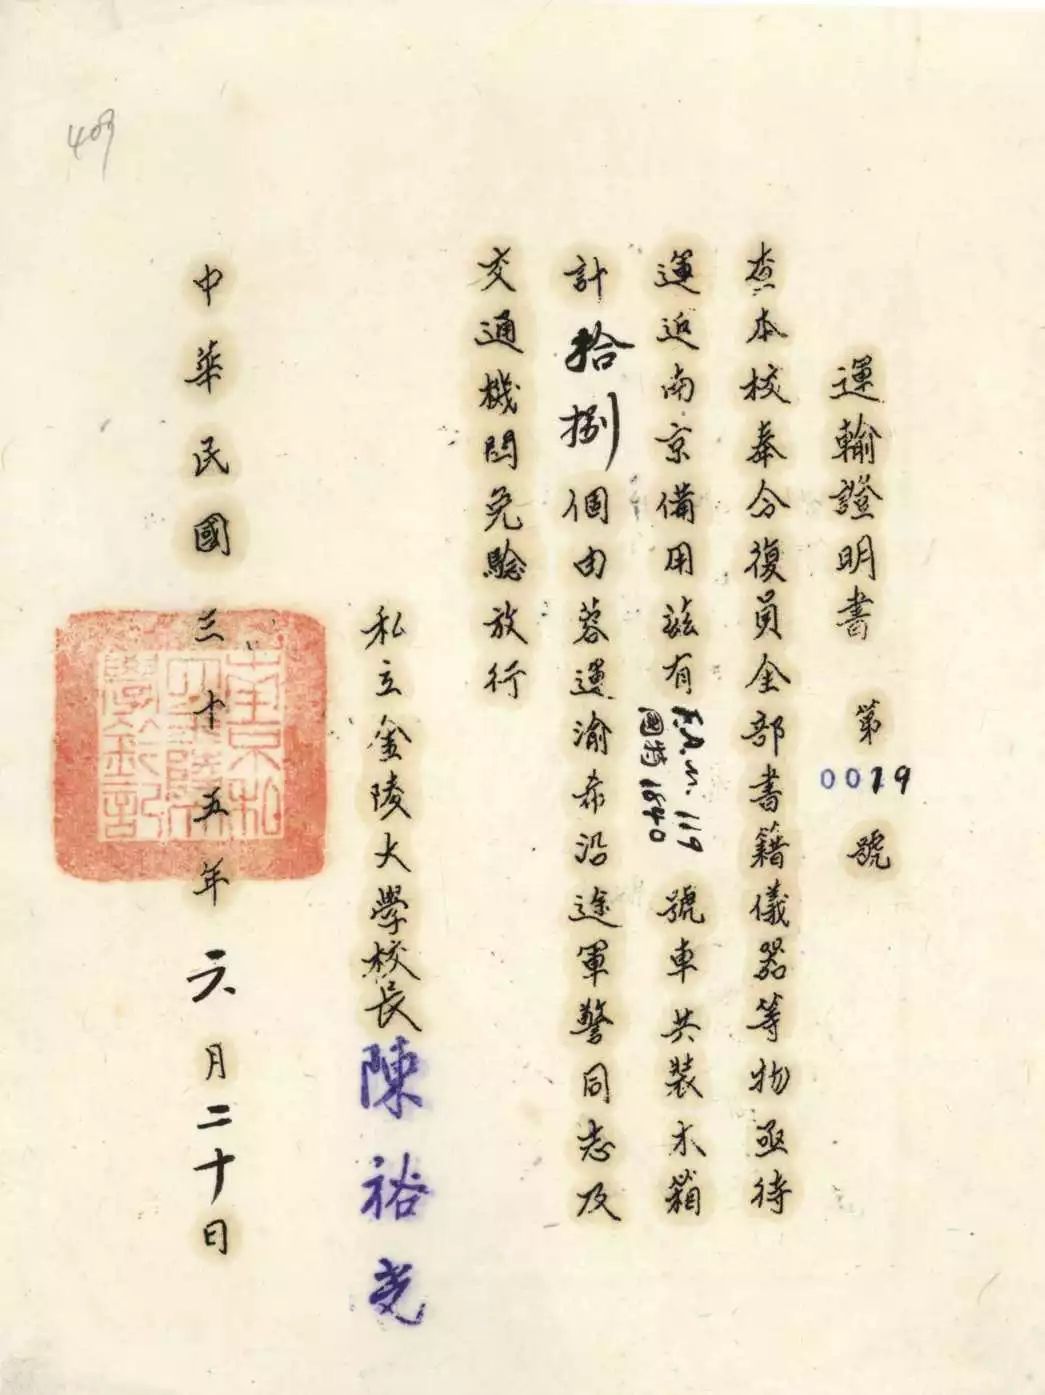 運輸證明書 第0019號
查本校奉令復員全部書籍儀器等物亟待
運返南京備用茲有F.A.M.119 國特1840號車共裝木箱
計拾捌個由蓉運渝希沿途軍警同志及
交通機關免驗放行
私立金陵大學校長陳裕光
中華民國三十五年六月二十日
南京私立金陵大學鈐記
409